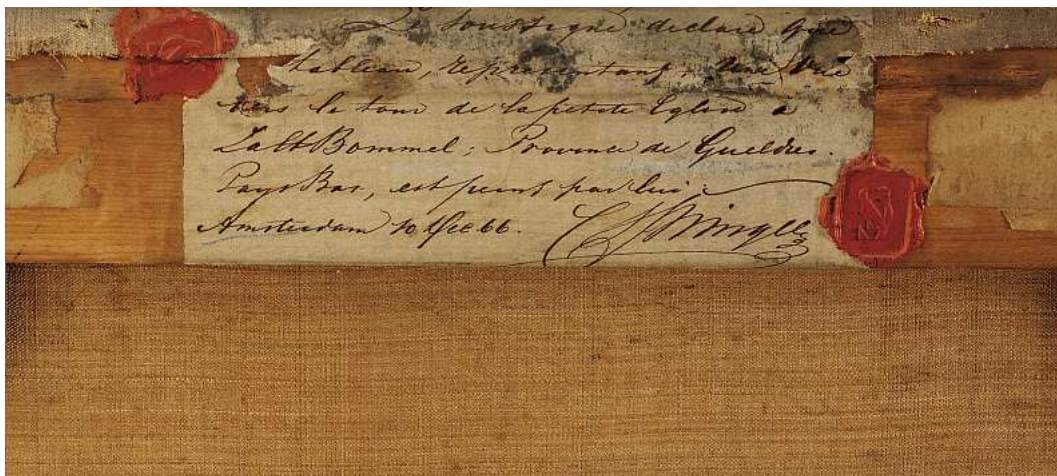 Le Soussigné declare que
tableau, représentant, Une Vue
vers le tour de la petite Eglise a
Zalt Bommel; Province de Gueldres.
Pays Bas, est peint par lui
Amsterdam 10 Dec 66.